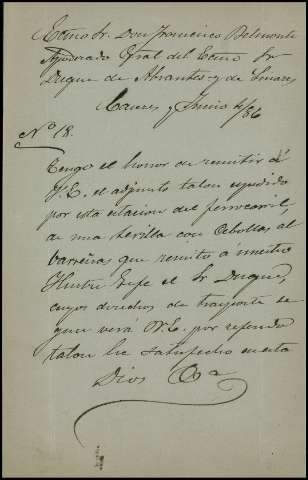 Exmo Sr. Don Francisco Belmonte
Apoderado Gral del Exmo Sr
Duque de Abrantes y de Linares
Caceres y Junio 4/86
Nº 18.
Tengo el honor de remitir á
V. E. el adjunto talon espedido
por esta estacion del ferrocarril,
de una
con Cebollas
que remito á nuestro
Gefe el Sr Duque,
cuyos derechos de trasporte se
gun verá V. E. por referido
talon he satisfecho en esta
Dios Gª